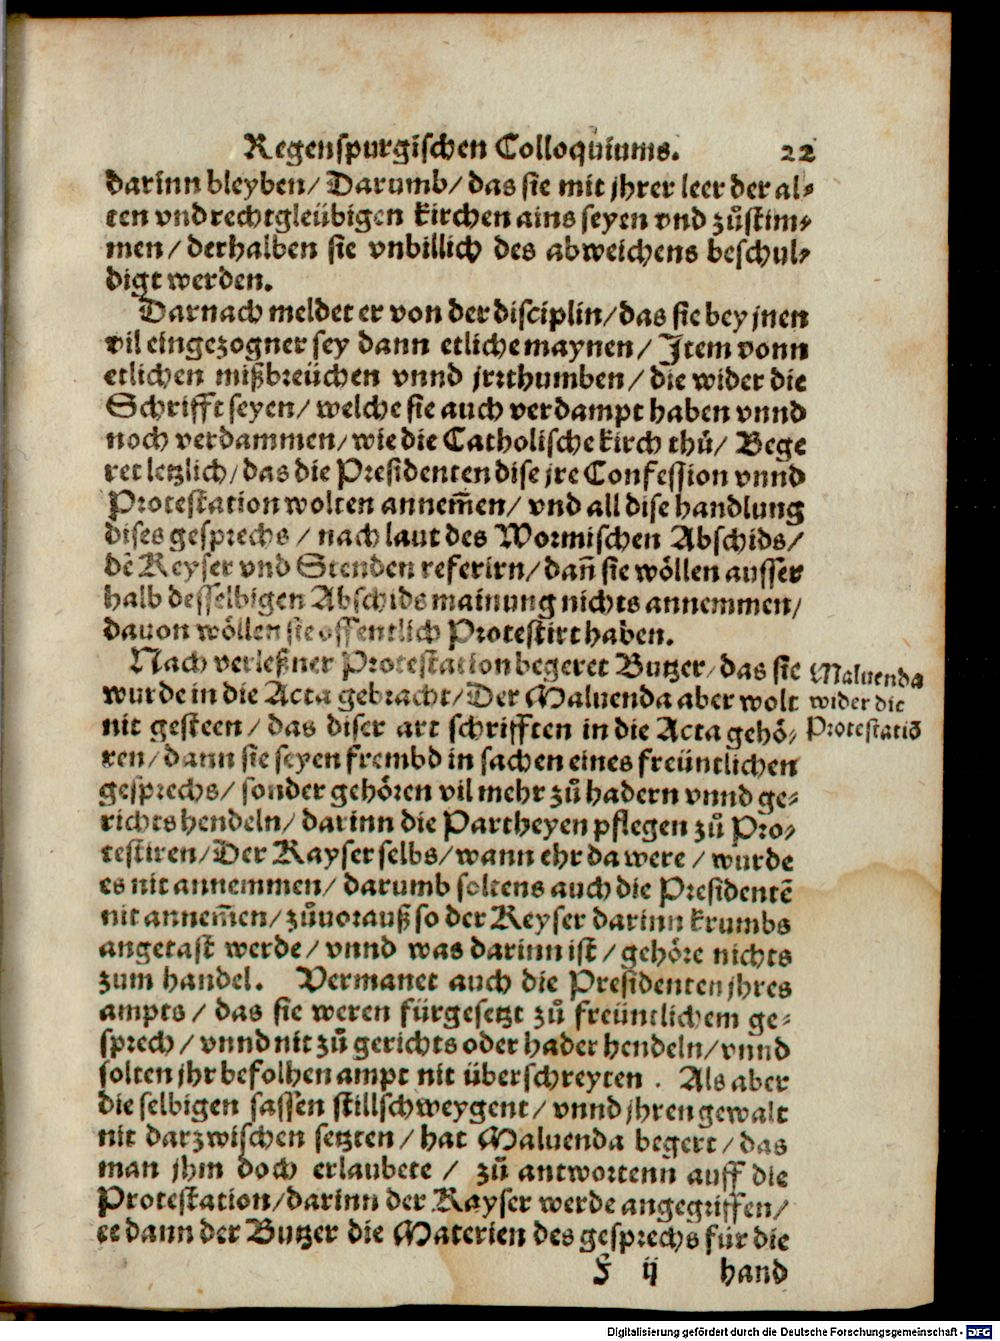 Regenspurgischen Colloquiums. 22
darinn bleyben/ Darumb/ das sie mit jhrer leer der al⸗
ten vnd rechtgleübigen kirchen ains seyen vnd zůstim⸗
men/ derhalben sie vnbillich des abweichens beschul⸗
digt werden.
Darnach meldet er von der disciplin/ das sie bey jnen
vil eingezogner sey dann etliche maynen/ Item vonn
etlichen mißbreüchen vnnd jrrthumben/ die wider die
Schrifft seyen/ welche sie auch verdampt haben vnnd
noch verdammen/ wie die Catholische kirch thů/ Bege
ret letzlich/ das die Presidenten dise jre Confession vnnd
Protestation wolten annem̃en/ vnd all dise handlung
dises gesprechs/ nach laut des Wormischen Abschids/
dẽ Keyser vnd Stenden referirn/ dañ sie wöllen ausser
halb desselbigen Abschids mainung nichts annemmen/
dauon wöllen sie offentlich Protestirt haben.
Nach verleßner Protestation begeret Butzer/ das sie
wurde in die Acta gebracht/ Der Maluenda aber wolt
nit gesteen/ das diser art schrifften in die Acta gehö⸗
ren/ dann sie seyen frembd in sachen eines freüntlichen
gesprechs/ sonder gehören vil mehr zů hadern vnnd ge⸗
richts hendeln/ darinn die Partheyen pflegen zů Pro⸗
testiren/ Der Kayser selbs/ wann ehr da were/ wurde
es nit annemmen/ darumb soltens auch die Presidentẽ
nit annem̃en/ zůuorauß so der Keyser darinn krumbs
angetast werde/ vnnd was darinn ist/ gehöre nichts
zum handel. Vermanet auch die Presidenten jhres
ampts/ das sie weren fürgesetzt zů freüntlichem ge⸗
sprech/ vnnd nit zů gerichts oder hader hendeln/ vnnd
solten jhr befolhen ampt nit überschreyten. Als aber
die selbigen sassen stillschweygent/ vnnd jhren gewalt
nit darzwischen setzten/ hat Maluenda begert/ das
man jhm doch erlaubete/ zů antwortenn auff die
Protestation/ darinn der Kayser werde angegriffen/
ee dann der Butzer die Materien des gesprechs für die
F ij hand
Maluenda
wider die
Protestatiõ
Digitalisierung gefördert durch die Deutsche Forschungsgemeinschaft - DFG